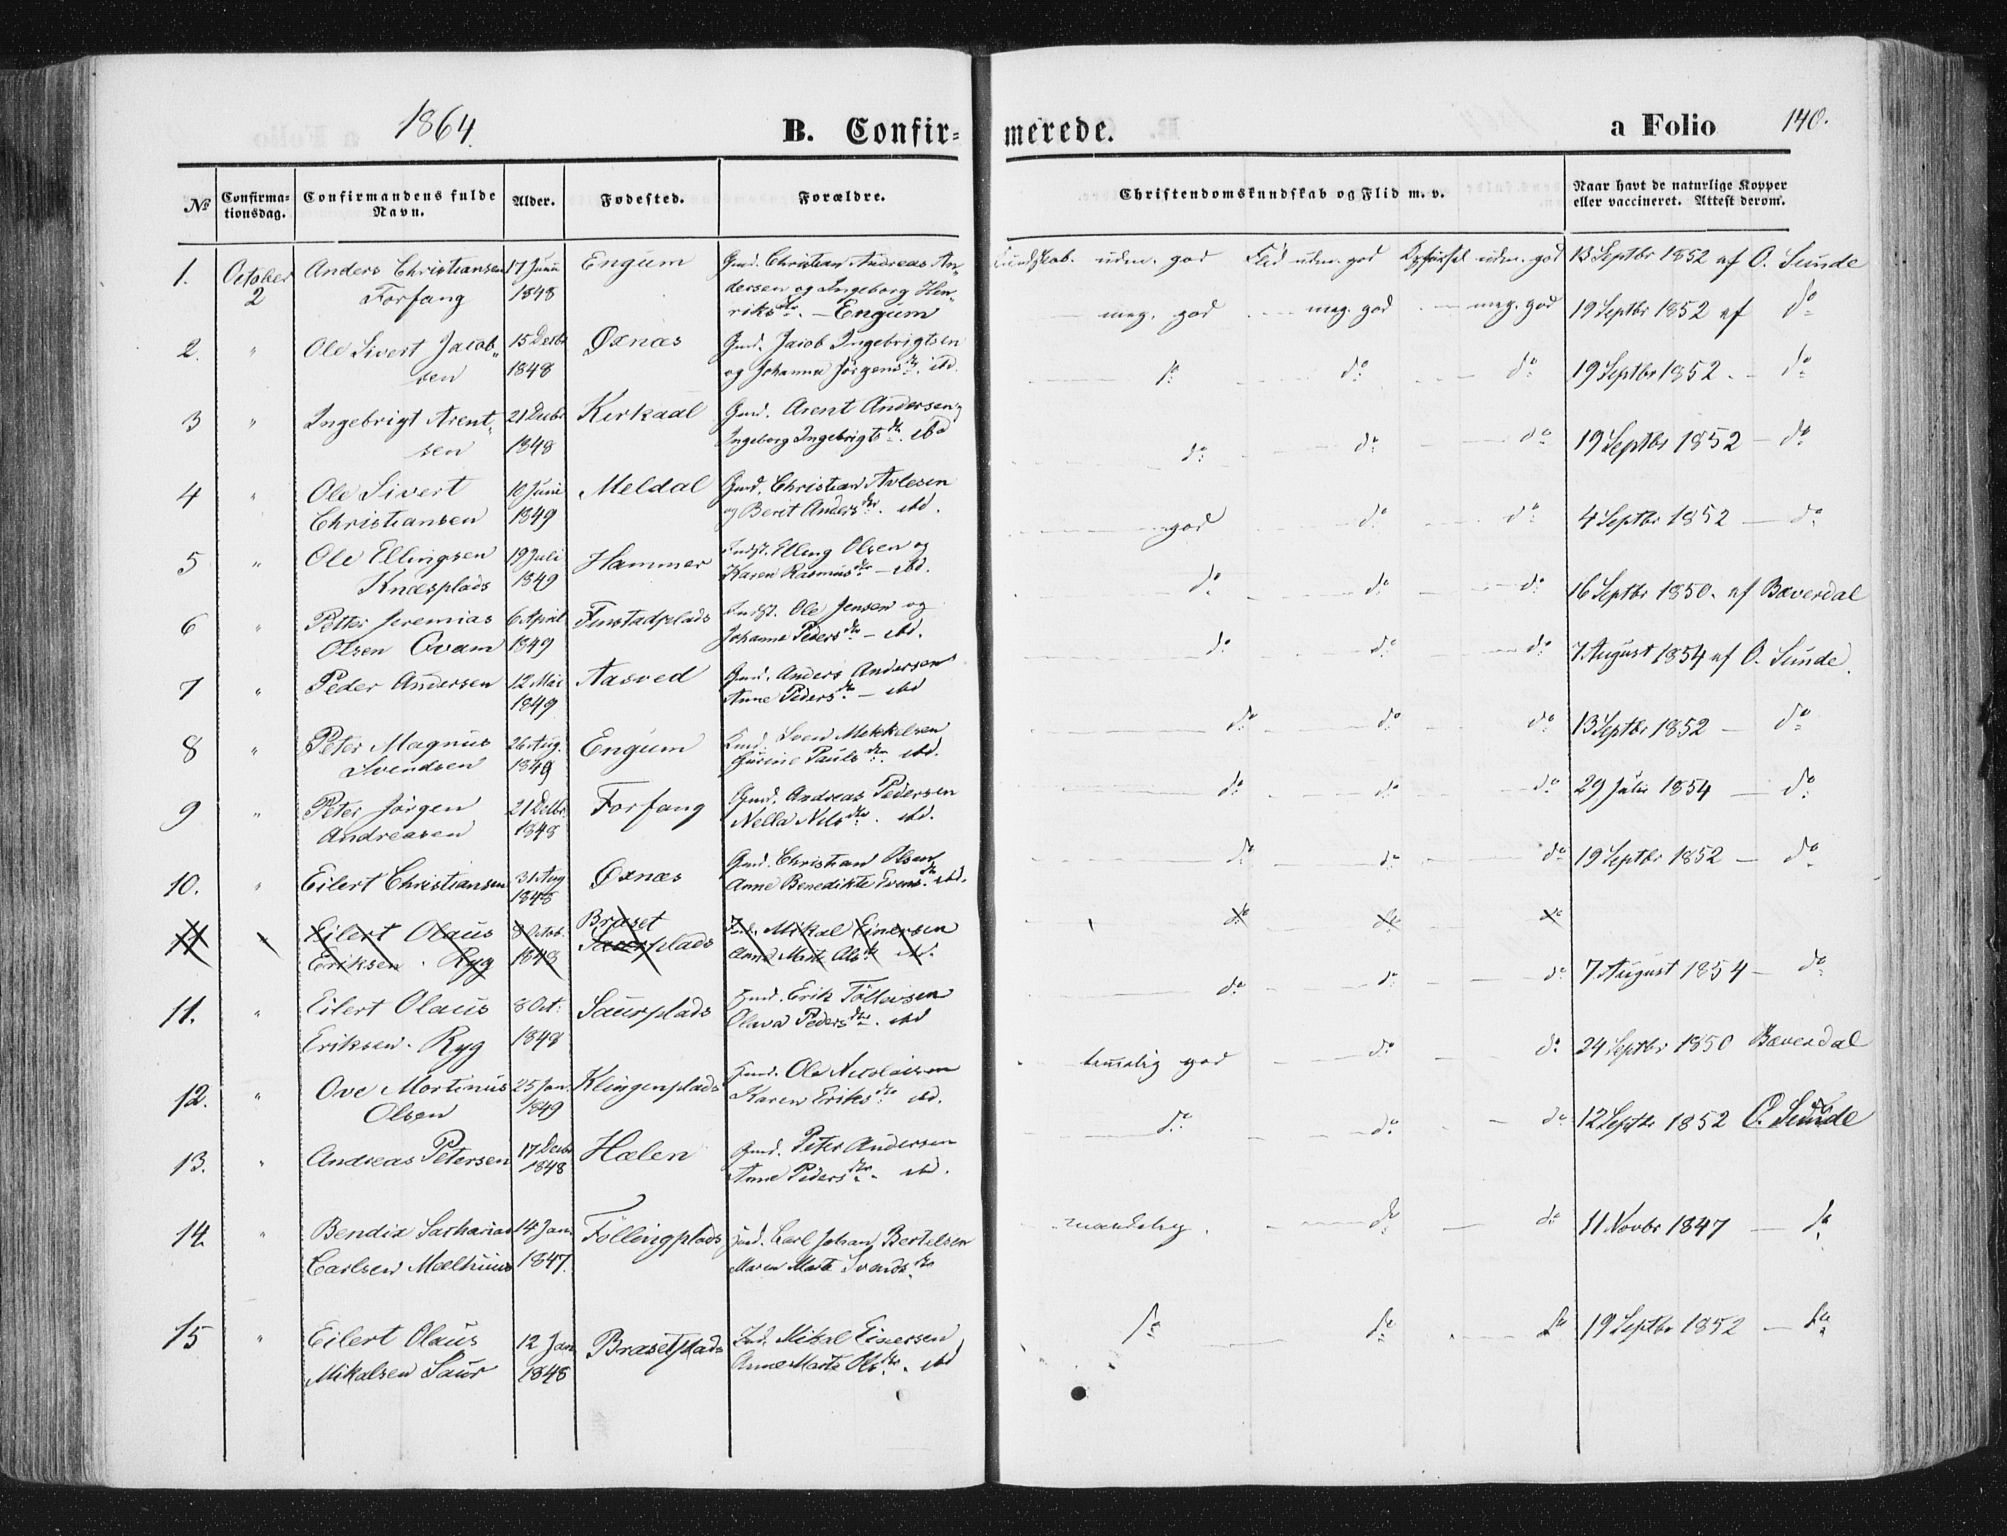 1864.
B. Confirmerede.
a Folio 140.
No Confirmationsdag. Confirmandens fulde Navn. Alder. Fødested. Forældre. Christendomskundskab og Flid m. v. Naar havt de naturlige Kopper eller vaccineret. Attest derom.
1. October 2 Anders Christiansen Forfang 17 Juni 1848 Engum Gmd. Christian Andreas Andersen og Ingeborg Henriksdr. – Engum Kundskab. udm. god Flid udm. god Opførsel udm. god 13 Septbr 1852 af O. Sunde
2. " Ole Sivert Jacobsen 15 Decbr 1848 Øxnæs Gmd. Jacob Ingebrigtsen og Johanna Jørgensdr. ibd. meg. god meg. god meg. god 19 Septbr 1852 af do
3 " Ingebrigt Arentsen 21 Decbr 1848 Kirkaal Gmd. Arent Andersen og Ingeborg Ingebrigtsdr. ibd do do do 19 Septbr 1852 – do
4 " Ole Sivert Christiansen 10 Juni 1849 Meldal Gmd. Christian Avlesen og Berit Andersdr. ibd. do do do 19 Septbr 1852 – do
5 " Ole Ellingsen Knæsplads 19 Juli 1849 Hammer Indst. Elling Olsen og Karen Rasmusdr – ibd. god do do 4 Septbr 1852 – do
6 " Petter Jeremias Olsen Qvam 6 April 1849 Finstadplads Indst. Ole Jensen og Johanna Pedersdr – ibd. do do do 16 Septbr 1850. af Bæverdal
7 " Peder Andersen 12 Mai 1849 Aasved Gmd. Anders Andersen Anne Pedersdr – ibd do do do 7 August 1854 af O. Sunde.
8 " Peter Magnus Svendsen 26 Aug. 1849 Engum Sven Mikkelsen Gurine Paulsdr. ibd. do do do 13 Septbr 1852 – do
9 " Peter Jørgen Andreasen 21 Decbr. 1848 Forfang Gmd. Andreas Pedersen Nella Nilsdr. ibd. do do do 29 Juli 1854 – do
10. " Eilert Christiansen 31 Aug 1848 Øxnæs Gmd. Christian Olsen Anne Benedikte Evensdr. ibd. do do do 19 Septbr 1852 – do
11 " Eilert Olaus Eriksen. Ryg 8 Octob. 1848 Bræset Saurplads Mikal Einersen Anne Marte Olsdr ibd. do do do
11. " Eilert Olaus Eriksen. Ryg 8 Oct: 1848 Saurplads Huusd. Erik Tølleivsen Olava Pedersdr. ibd do do do 7 August 1854 – do
12. " Ove Martinus Olsen 25 Jan. 1849 Klingenplads Huusd. Ole Nicolaisen Karen Eriksdr. ibd. temmelig god do do 24 Septbr 1850 Bæverdal
13. " Andreas Petersen 17 Decbr 1848 Hælen Gmd. Peter Andersen Anne Pedersdr. ibd. do do do 12 Septbr 1852 O. Sunde
14. " Bendix Sacharias Carlsen Mælhuus 14 Jan. 1847. Føllingplads Carl Johan Bertelsen Maren Marta Svendsdr maadelig. do do 11 Novbr 1847 – do
15 " Eilert Olaus Mikalsen Saur 12 Jan 1848 Bræsetplads Mikal Einersen Anne Marta Olsdr. ibd do do do 19 Septbr 1852 – do